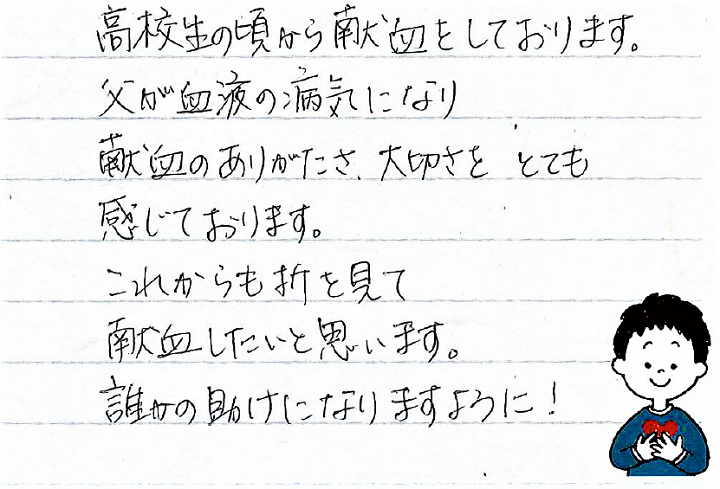 高校生の頃から献血をしております。
父が血液の病気になり
献血のありがたさ、大切さを とても
感じております。
これからも折を見て
献血したいと思います。
誰かの助けになりますように！